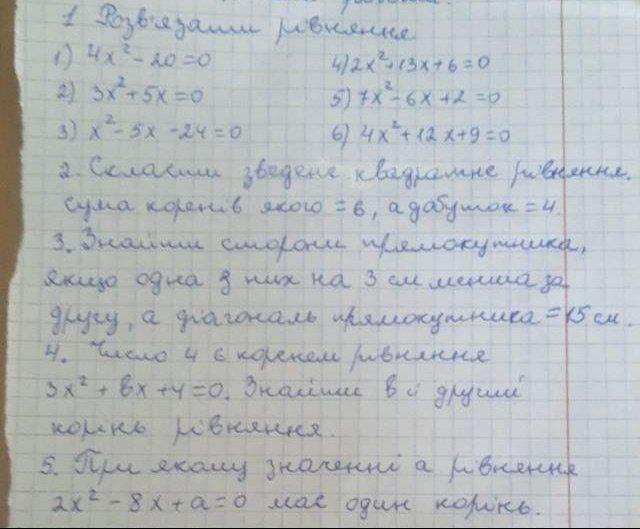 1 Розв'язати рівняння
1) 4x² - 20 = 0 4) 2x² + 13x + 6 = 0
2) 3x² + 5x = 0 5) 7x² - 6x + 2 = 0
3) x² - 5x - 24 = 0 6) 4x² + 12x + 9 = 0
2. Скласти зведене квадратне рівняння.
сума коренів якого = 6, а добуток = 4.
3. Знайти сторони прямокутника,
якщо одна з них на 3 см менша за
другу, а діагональ прямокутника = 15 см.
4. Число 4 є коренем рівняння
3x² + bx + 4 = 0. Знайти b і другий
корінь рівняння.
5. При якому значенні a рівняння
2x² - 8x + a = 0 має один корінь.